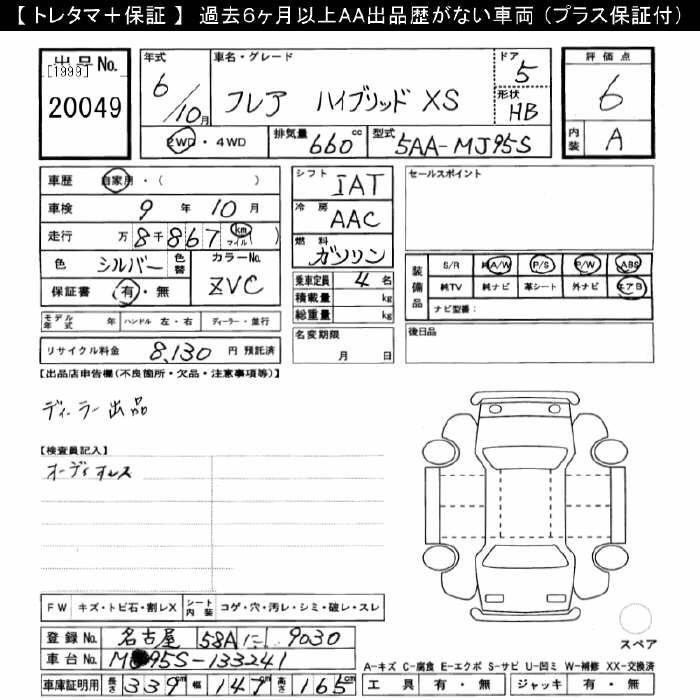 【 トレタマ＋保証 】 過去6ヶ月以上AA出品歴がない車両 (プラス保証付)
出品No.
[1999]
20049
年式
6/10月
車名・グレード
フレア ハイブリッド XS
ドア
5
形状
HB
2WD・4WD
排気量 660 cc
型式 5AA-MJ95S
評価点
6
内装 A
車歴 自家用・( )
車検 9 年 10 月
走行 万 8 千 8 6 7 km マイル ( )
色 シルバー 色替
カラーNo.
ZVC
保証書 有・無
シフト
IAT
冷房
AAC
燃料
ガソリン
乗車定員 4 名
積載量 kg
総重量 kg
セールスポイント
装備品
S/R 純A/W P/S P/W ABS
純TV 純ナビ 革シート 外ナビ エアB
ナビ型番:
モデル年式 年 ハンドル 左・右 ディーラー・並行
リサイクル料金 8,130 円 預託済
名変期限
月 日
後日品
【出品店申告欄(不良箇所・欠品・注意事項等)】
ディーラー出品
【検査員記入】
オーディオレス
FW キズ・トビ石・割レX シート内装 コゲ・穴・汚レ・シミ・破レ・スレ
登録No. 名古屋 58A に 9030
車台No. M 95S-133241
車庫証明用 長さ 339cm 幅 147cm 高さ 165cm
スペア
A-キズ C-腐食 E-エクボ S-サビ U-凹ミ W-補修 XX-交換済
工具 有・無 ジャッキ 有・無